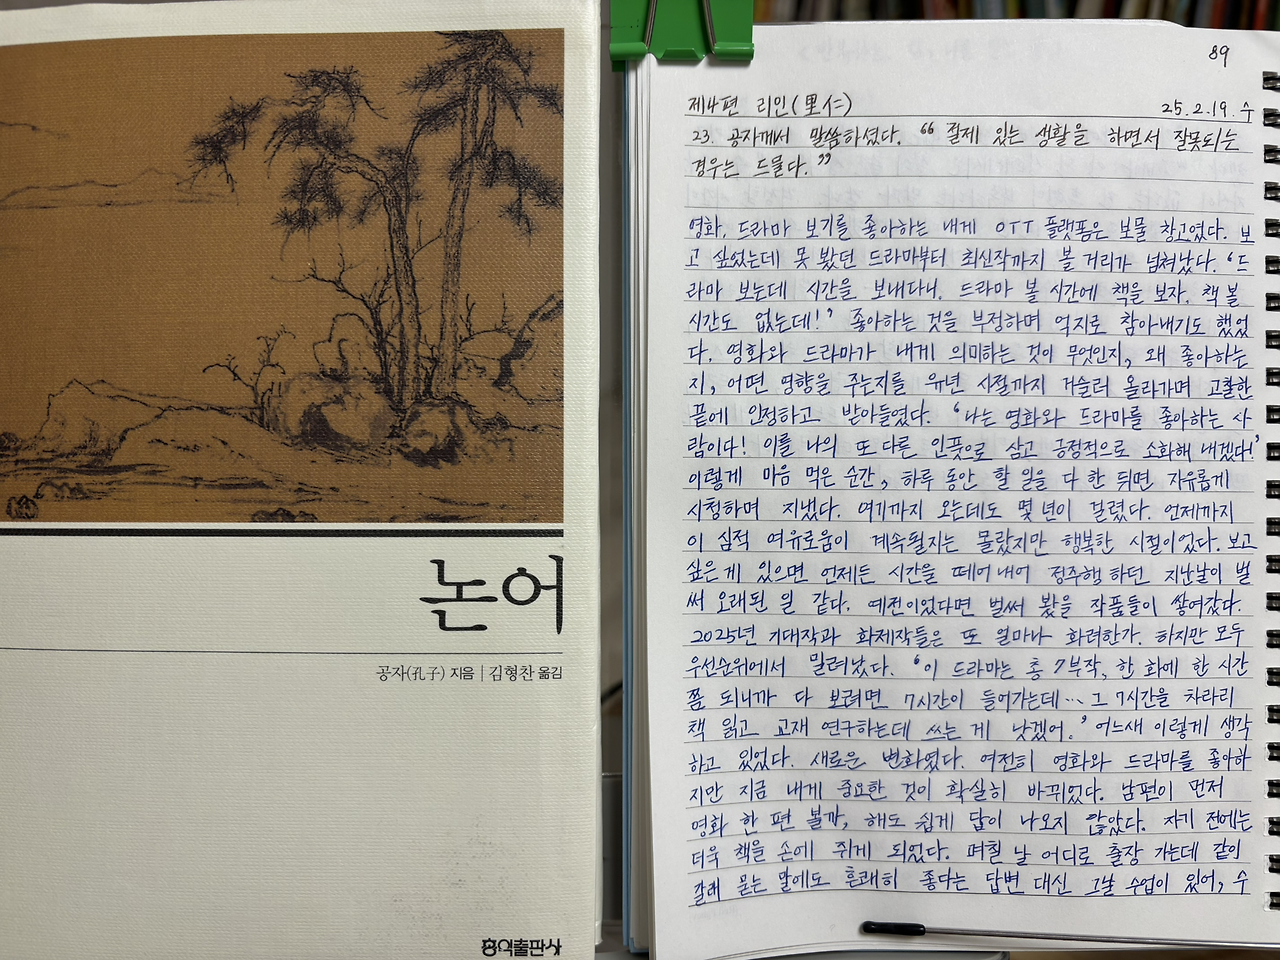 논어
공자(孔子) 지음 | 김형찬 옮김
홍익출판사
89
제4편 리인(里仁) 25.2.19. 수
23. 공자께서 말씀하셨다. “절제 있는 생활을 하면서 잘못되는
경우는 드물다.”
영화, 드라마 보기를 좋아하는 내게 OTT 플랫폼은 보물 창고였다. 보
고 싶었는데 못 봤던 드라마부터 최신작까지 볼 거리가 넘쳐났다. ‘드
라마 보는데 시간을 보내다니. 드라마 볼 시간에 책을 보자. 책 볼
시간도 없는데!’ 좋아하는 것을 부정하며 억지로 참아내기도 했었
다. 영화와 드라마가 내게 의미하는 것이 무엇인지, 왜 좋아하는
지, 어떤 영향을 주는지를 유년 시절까지 거슬러 올라가며 고찰한
끝에 인정하고 받아들였다. ‘나는 영화와 드라마를 좋아하는 사
람이다! 이를 나의 또 다른 인풋으로 삼고 긍정적으로 소화해 내겠다!’
이렇게 마음 먹은 순간, 하루 동안 할 일을 다 한 뒤면 자유롭게
시청하며 지냈다. 여기까지 오는데도 몇 년이 걸렸다. 언제까지
이 심적 여유로움이 계속될지는 몰랐지만 행복한 시절이었다. 보고
싶은 게 있으면 언제든 시간을 떼어 내어 정주행 하던 지난날이 벌
써 오래된 일 같다. 예전이었다면 벌써 봤을 작품들이 쌓여갔다.
2025년 기대작과 화제작들은 또 얼마나 화려한가. 하지만 모두
우선순위에서 밀려났다. ‘이 드라마는 총 7부작, 한 화에 한 시간
쯤 되니까 다 보려면 7시간이 들어가는데… 그 7시간을 차라리
책 읽고 교재 연구하는데 쓰는 게 낫겠어.’ 어느새 이렇게 생각
하고 있었다. 새로운 변화였다. 여전히 영화와 드라마를 좋아하
지만 지금 내게 중요한 것이 확실히 바뀌었다. 남편이 먼저
영화 한 편 볼까, 해도 쉽게 답이 나오지 않았다. 자기 전에는
더욱 책을 손에 쥐게 되었다. 며칠 날 어디로 출장 가는데 같이
갈래 묻는 말에도 흔쾌히 좋다는 답변 대신 그날 수업이 있어, 수